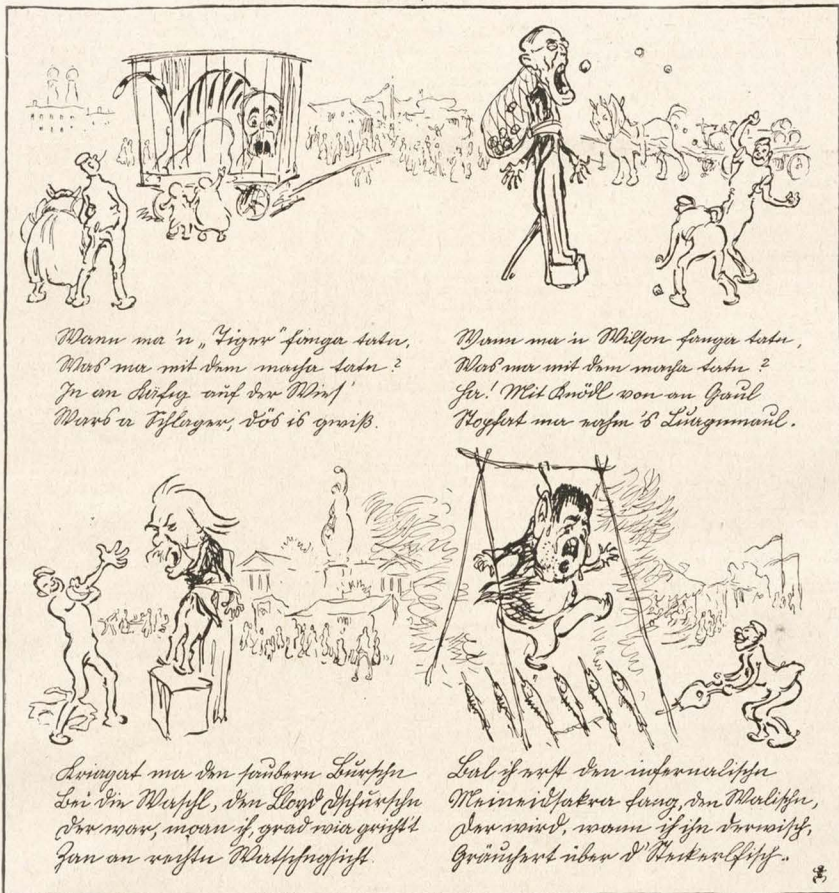 Wann ma 'n „Tiger“ fanga tatn,
Was ma mit dem macha tatn?
In an Käfig auf der Wies'
Wars a Schlager, dös is gwiß.
Wann ma 'n Wilson fanga tatn,
Was ma mit dem macha tatn?
Ha! Mit Knödl von an Gaul
Stopfat ma eahm 's Luagnmaul.
Kriagat ma den saubern Burschn
Bei die Waschl, den Lloyd Dschurschn
Der war, moan ih, grad wia gricht't
Zan an rechtn Watschngsicht.
Bal ih erst den infernalischn
Meineidsakra fang, den Walischn,
Der wird, wann ih ihn derwisch,
Gräuchert über d' Steckerlfisch.